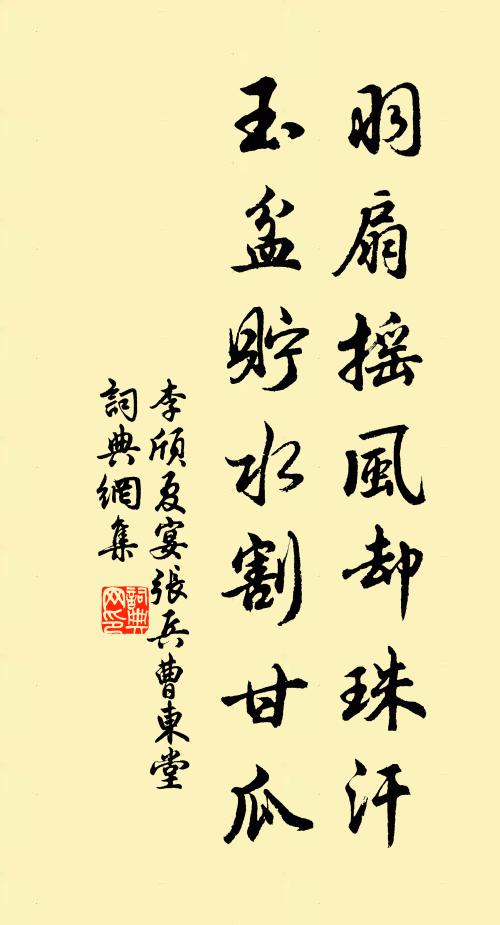 羽扇摇風却珠汗
玉盆貯水割甘瓜
李頎夏宴張兵曹東堂
詞典網集
詞典网印